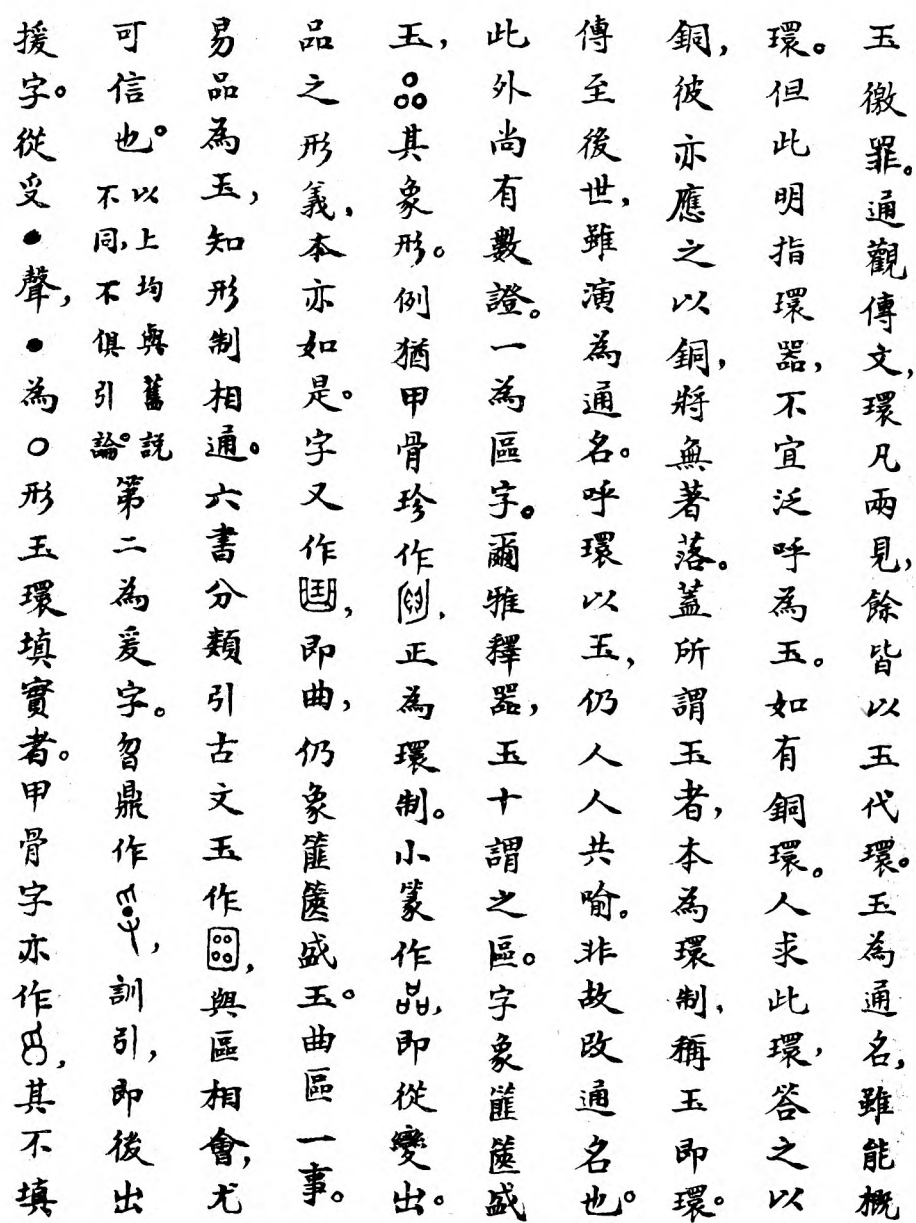 玉徼罪。通觀傳文，環凡兩見，餘皆以玉代環。玉為通名，雖能概
環。但此明指環器，不宜泛呼為玉。如有銅環。人求此環，答之以
銅，彼亦應之以銅，將無著落。蓋所謂玉者，本為環制，稱玉即環。
傳至後世，雖演為通名。呼環以玉，仍人人共喻。非故改通名也。
此外尚有數證。一為區字。爾雅釋器，玉十謂之區。字象篚匧盛
玉，其象形。例猶甲骨珍作，正為環制。小篆作品，即從變出。
品之形義，本亦如是。字又作，即曲，仍象篚匧盛玉。曲區一事。
易品為玉，知形制相通。六書分類引古文玉作，與區相會，尤
可信也。以上均與舊說不同，不俱引論。第二為爰字。曶鼎作，訓引，即後出
援字。從受●聲，●為○形玉環填實者。甲骨字亦作，其不填